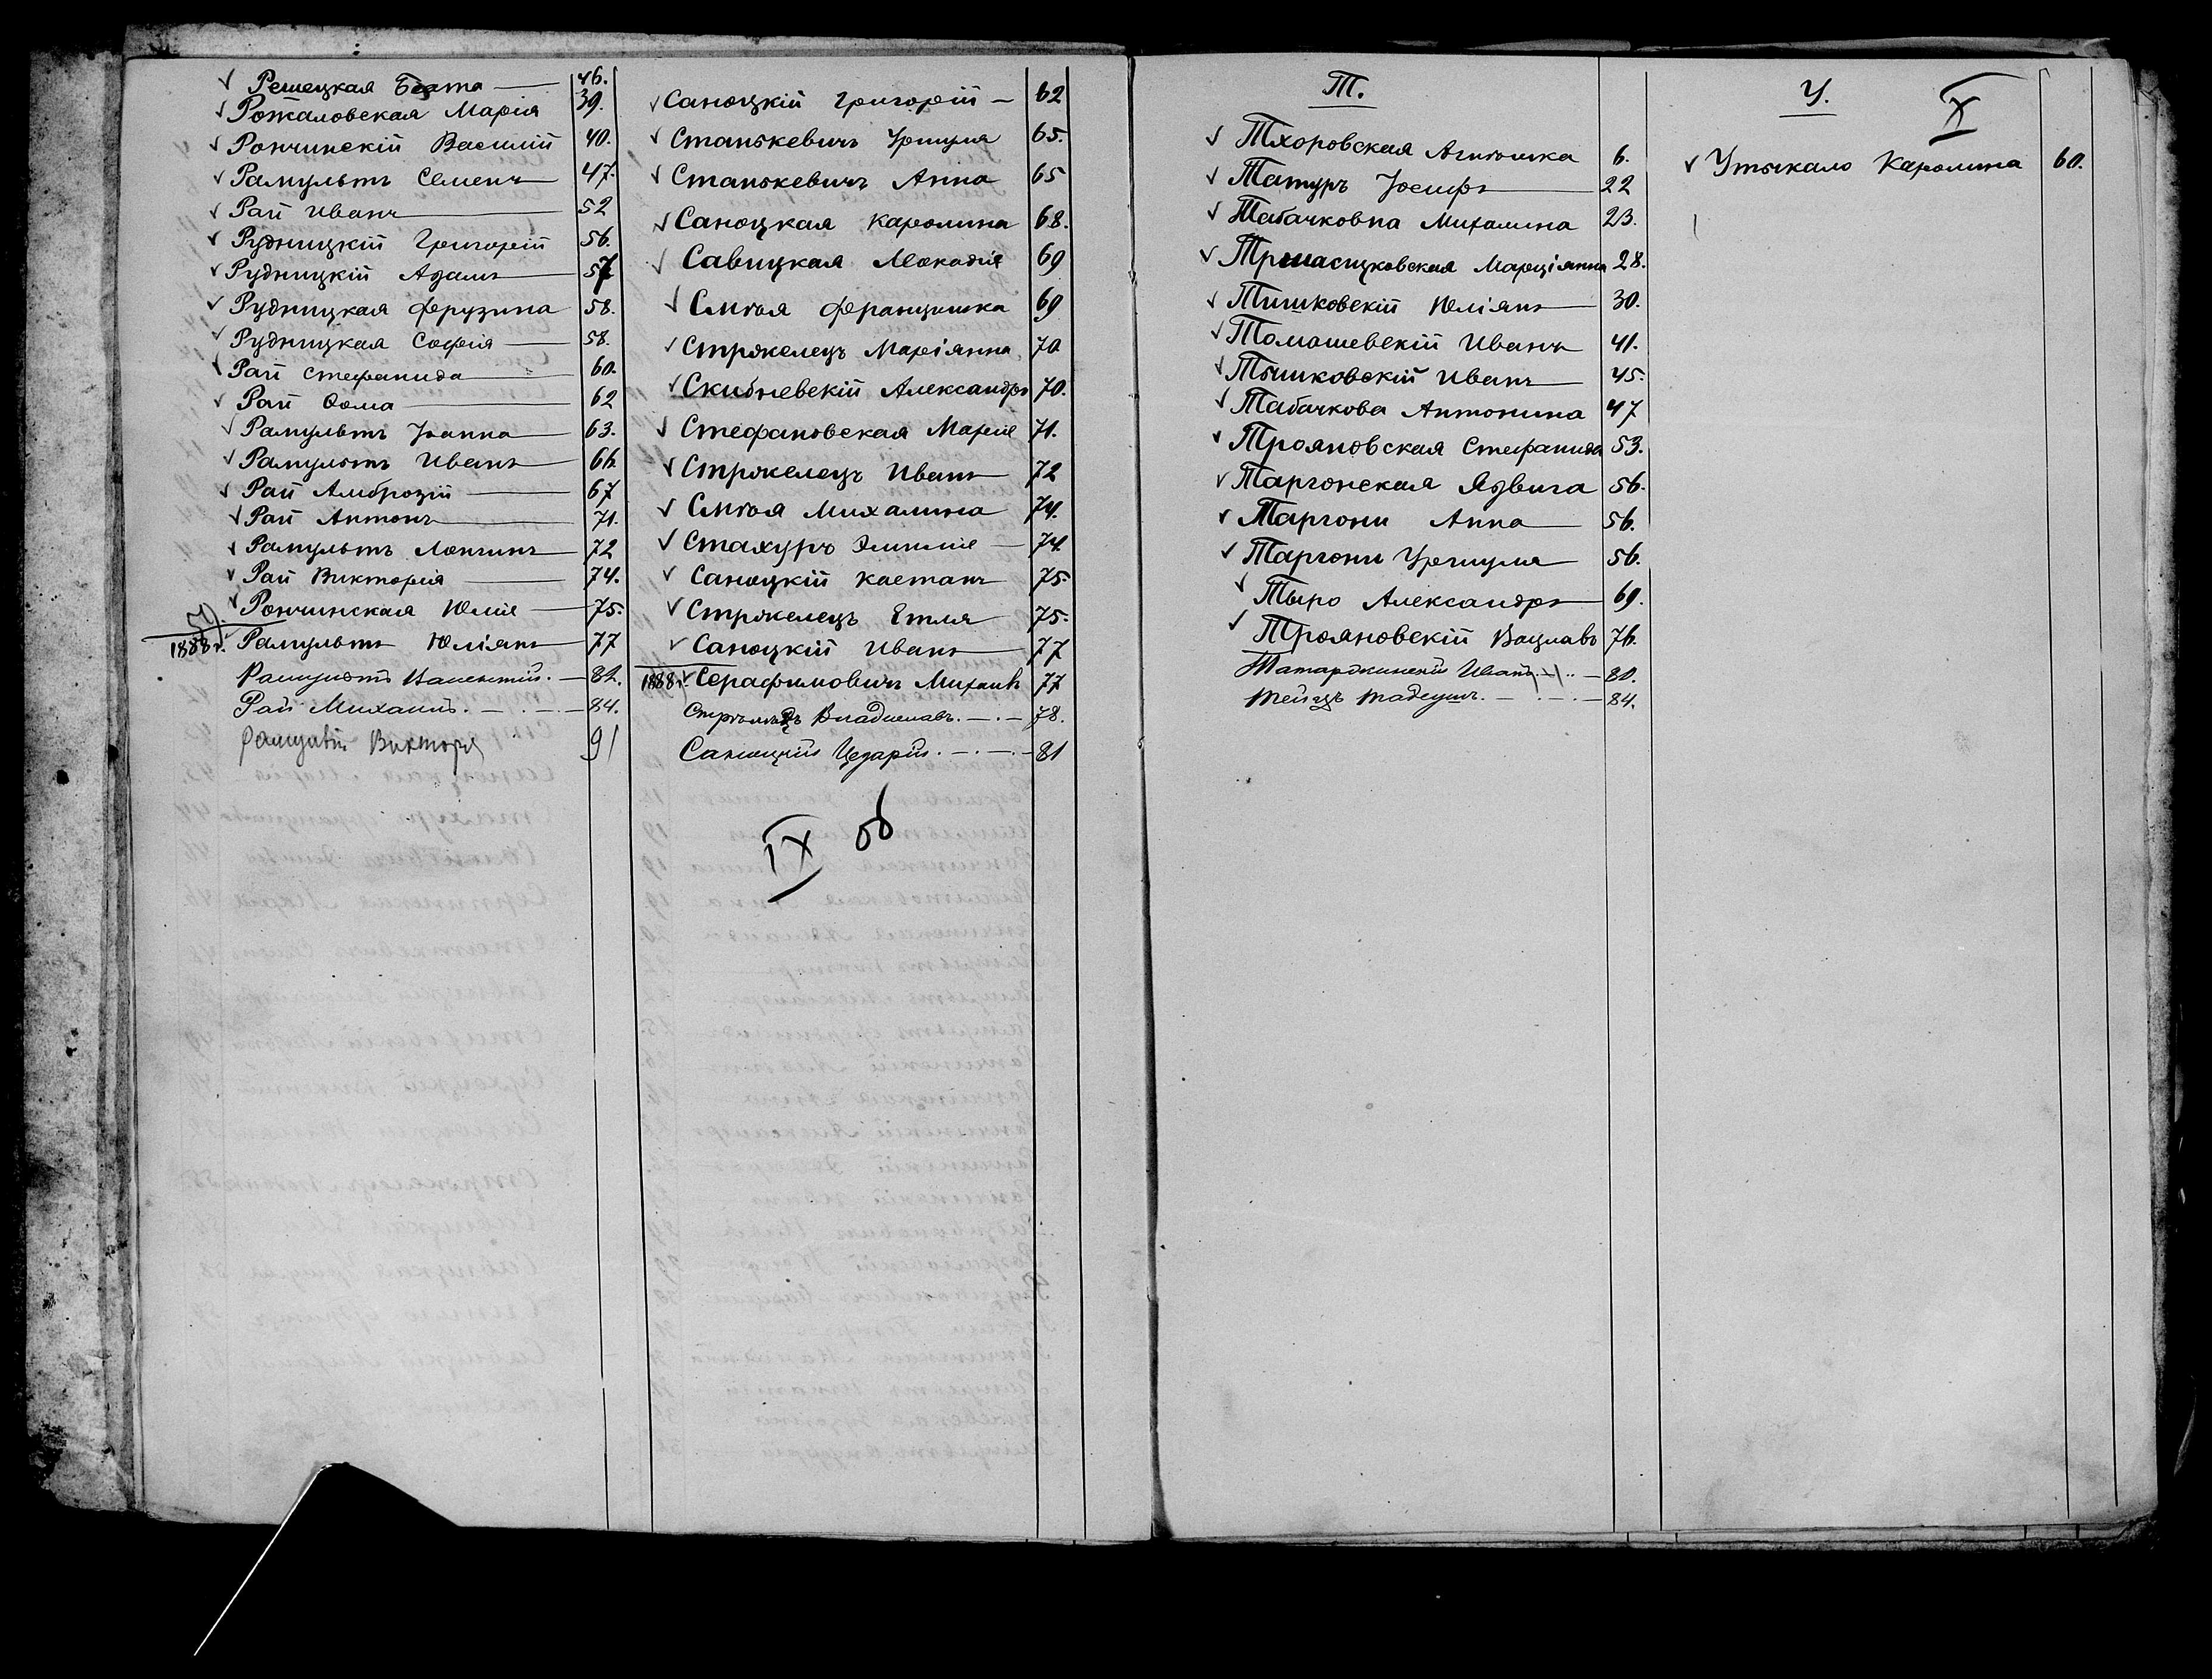 Решецкая Беата — 46.
Рожаловская Марія 39.
Рончинскій Василій 40.
Рамультъ Семенъ 47.
Рай Иванъ 52
Рудницкій Григорій 56.
Рудницкій Адамъ 57
Рудницкая Ферузина 58.
Рудницкая Софія 58.
Рай Стефанида 60.
Рай Ѳома 62
Рамультъ Іоанна 63.
Рамультъ Иванъ 66.
Рай Амброзій 67
Рай Антонъ 71.
Рамультъ Лонгинъ 72
Рай Викторія 74.
Рончинская Юлія 75.
1888 г. Рамультъ Юліянъ 77
Рамультъ Валентій. — 82.
Рай Михаилъ. — . — . — 84.
Рамультъ Викторъ 91
Саноцкій Григорій — 62
Станькевичъ Уршуля 65.
Станькевичъ Анна 65
Саноцкая Каролина 68.
Савицкая Леокадія 69
Смѣтая Францишка 69
Стржелецъ Маріянна 70
Скибневскій Александръ 70.
Стефановская Марія 71.
Стржелецъ Иванъ 72
Смѣтая Михалина 74.
Стахуръ Эмилія — 74.
Саноцкій Каетанъ 75.
Стржелецъ Емля 75.
Саноцкій Иванъ 77
1888 г. Серафимовичъ Михаилъ 77
Владиславъ. — . — 78.
Саноцкій Цезарій. — . — . — 81
IX об
Т.
Тхоровская Агнѣшка 6.
Татуръ Іосифъ 22
Табачковна Михалина 23.
Марціянна 28.
Тишковскій Юліянъ 30.
Томашевскій Иванъ 41.
Тышковскій Иванъ 45.
Табачкова Антонина 47
Трояновская Стефанида 53.
Таргонская Ядвига 56.
Таргони Анна 56.
Таргони Уршуля 56.
Тыро Александръ 69.
Трояновскій Вацлавъ 76.
Татаржинскій Иванъ — 80.
Тейхъ Тадеушъ. — . — . — 84.
У.
X
Утыкало Каролина 60.